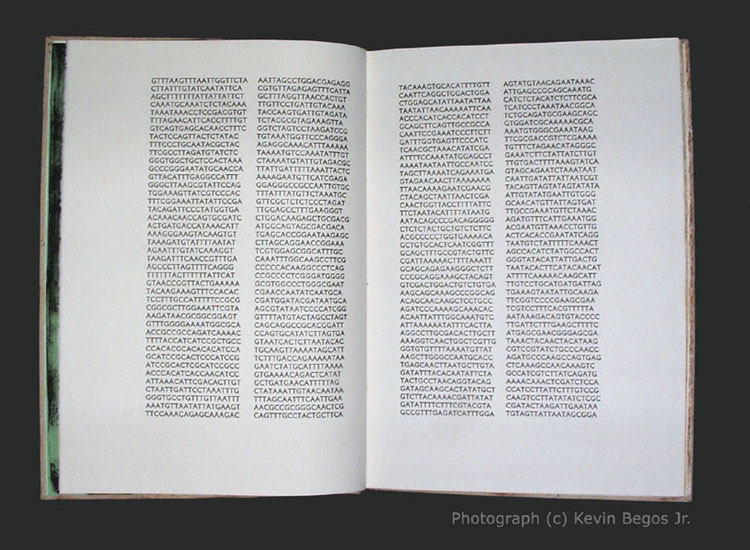 GTTTAAGTTTAATTGGTTCTA
CTTATTTGTATCAATATTCA
AGCTTTTTTTATTTATATTCT
CAAATGCAAATCTCTACAAA
TAAATAAACCTCCGACGTGT
TTTAGAACATTCACTTTTGT
GTCAGTGAGCACAACCTTTC
TACTCCAGTTACTCTATAC
TTTCCCTGCAATACGCTAC
TTCGCCTTAGATGTATCTC
GGGTGGCTGCTCCACTAAA
GCCCGGGAATATGCAACCA
GTACATTTGAGGCCATTT
GGGCTTAAGCGTATTCCAG
TGGAAAGTTATCGTCCCAC
TTTCGGAAATTATATTCCGA
TACAGATTCCCTATGGTGA
ACAAACAACCAGTGCGATC
ACTGATGACCATAAACATT
AAAGGGAAGTACAAGTGT
TAAAGATGTATTTTAATAT
AGAATTTGTATCAAAGGT
TAAGATTTCAACCGTTTGA
AGCCCTTAGTTTTCAGGG
TTTTTTACTTTTTTATTCAT
GTAACCGGTTACTGAAAAA
TACAAGAAAGTTTCCACAC
TCCTTTGCCATTTTTCCGCG
CGGCGCTTGGAAATTCGTA
AAGATAACGCGGCGGAGT
GTTTGGGGAAATGGCGCA
ACCGCCGCCAGATCAAAAC
TTTTACCATCATCCGCTGCC
CCACACGCACACACATCCA
GCATCCGCACTCCCATCCG
ATCCGCACTCGCATCCGCC
ACCCACATCACCAACATCC
ATTAAACATTCGACACTTGT
CTAATTGATTCCTAAATTTG
GGGTGCCTGTTTGTTAATTT
AAATGTTAATATTATGAAGT
TTCCAAACAGAGCAAAGAC
AATTAGCCTGGACGAGAGG
CGTGTTAGAGAGTTTCATTA
GCTTTAGGTTAACCACTGT
TTGTTCCTGATTGTACAAA
TACCAAGTGATTGTAGATA
TCTACGCGTAGAAAGTTA
GGTCTAGTCCTAAGATCCG
TGTAAATGGTTCCCAGGGA
AGAGGCAAACATTTAAAAA
TAAAATGTCCAAATATTTGT
CTAAAATGTATTGTAGACGC
TTATTGATTTTTAAATTACTC
AAAAGAATGTTCATCGAGA
GGAGGGCCGCCAATTGTGC
TTTATTTATGTTCTAAATGC
GTTCGCTCTCTCCCTAGAT
TGGAGCGCTTTGAAGGGT
CTGGACAAGAGCTGCGACG
ATGGCAGTAGCGACGACA
TGAGCACCGGAATAAGAGC
CTTAGCAGGAACCGGAAA
TCGTTGGAGCGGCATTTGC
CAAATTTGGCAAGCCTTCG
CCCCCACAAGGCCCTCAG
CCGCCCCTCGGGATGGGG
GCGTGGGCCTGGGCGAAT
CGAACCAATATCAATGCA
CGATGGATACGATAATGCA
AGCGTATAATCCCATCGG
GTTTTATGTACTAGCCTAGT
CAGCAGGCCGCACGGATT
CCAGTGCATATCTTAGTGA
GTAATCACTCTTAATACAC
TGCAAGTTAAAATAGCATT
TCTTTGACCAGAAAAATAA
GAATCTATGCATTTTAAAA
GTGAAAACAGACTCATAT
GCTGATGAACATTTTTAG
CTATAAATTGTAACAATAA
TTTAGCAATTTCAATTGAA
AACGCCGCGGGCAACTCG
CAGTTTGCCTACTGCTTCA
TACAAAGTGCACATTTTGTT
CAATTCAGGCTGGACTGGA
CTGGAGCATATTAATATTAA
TAATATTAACAAAAATTCAA
ACCCACATCACCACATCCT
GCAGCTTCAGTTGCCGCCA
CAATTCCGAAATCCCTTCTT
GATTTGGTGAGTTCCCATC
TCAACGCTAAACATATCGA
ATTTTCCAAATATGGAGCCT
AAAATAATAATTGCCAATCC
TAGCTTAAAATCAGAAATGA
GTAGAACAACTTAAAAAAA
TTAACAAAAGAATCGAACG
CTACAGCTAATTAACTCGA
CAACTGGTTACCTTTTATTC
TTCTAATACATTTTATAATG
AATACAGCCCGACAGGGGG
CTCTCTACTGCTGTCTCTTC
ACGCCCCCTGGTGAAAACA
GCTGTGCACTCAATCGGTTT
GCAGCTTTGCCGTACTGTTC
CGATTAAAAACTTTTAAAT
GCAGCAGAGAAGGGCTCTT
CCCGCAGGAAAGCTACAGT
GTCGACTGGACTGTCTGTGA
AAGCAGCAAAGCCCGGCAG
ACAGCAACAAGCTCCTGCC
AGATCCCAAAAGCAAACAC
ACAATTATTTGGCAAATGTC
ATTAAAAATATTTTCACTTA
AGGCCTTGCGACACTTGCTT
AAAGGTCAACTGGCTCGTTG
GGTGTGTTTTAAAATGTTAT
AAGCTTGGGCCAATGCACC
TGAGCAACTTAATGCTTGTA
GATATTTACACAATATTCTA
TACTGCCTAACAGGTACAT
GATAGCAAGCACTATATGCT
GTCTTACAAAACGATTATAT
GATATTTTCTTTCGTACGTA
GCCGTTTGAGATCATTTGGA
AGTATGTAACAGAATAAAC
ATTGAGCCGCAGCAAATG
CATCTCTACATCTCTTCGCA
TCATCCCTAAATAACGGCA
CTGCAGATGCGAAGCAGC
GTGGATCGCAAAAACGCA
AAATGTGGGCGAAATAAG
TTCGCGACCGTCTCGAAAA
TGTTTCTAGAACATAGGGC
GAAATCTTCTATTATCTTGT
TTGTGACTTTTAAAGTATCA
GTAGCAGAATCTAAATAAT
CAATTGATATTATTAATCGT
TACAGTTAGTATAGTATATA
ATTGTATATGAATTGTGGG
GCAACATGTTATTAGTGAT
TTGCCGAAATGTTCTAAAC
AGATGTTTCATTGAAATGG
ACGAATGTTAAACCTGTTG
ACTCACACCGAATATCAGG
TAATGTCTATTTTTCAAACT
AGCCACATCTATGGCCACT
GGGTATACATTATTGACTG
TAATACACTTCATACAACAT
ATTTTCAAAAACAAGCATT
TTGTCCTGCATGATGATTAG
TGAAAGTAATATTGCAAGA
TTCGGTCCCCGAAGCGAA
TCGTCCTTTCACGTTTTTA
AATAAAGACAGTGTACCCC
TTGATTCTTTGAAGCTTTTC
ATGAGCGAACGGGAGCGA
TAAACTACAACTACATAAG
CGTCCGTATCTGCCCAACC
AGATGCCCAAGCCAGTGAG
CTCAAAGCCAACAAAGTC
GCCATCGTCTTATCAGATG
AAAACAAACTCGATCTCCA
CCATCCTTATTCTTTGTCCG
CAAGTCCTTATATATCTCGC
CGATACTAAGATTGAATAA
TGTAGTTATTAATAGCGGA
Photograph (c) Kevin Begos Jr.